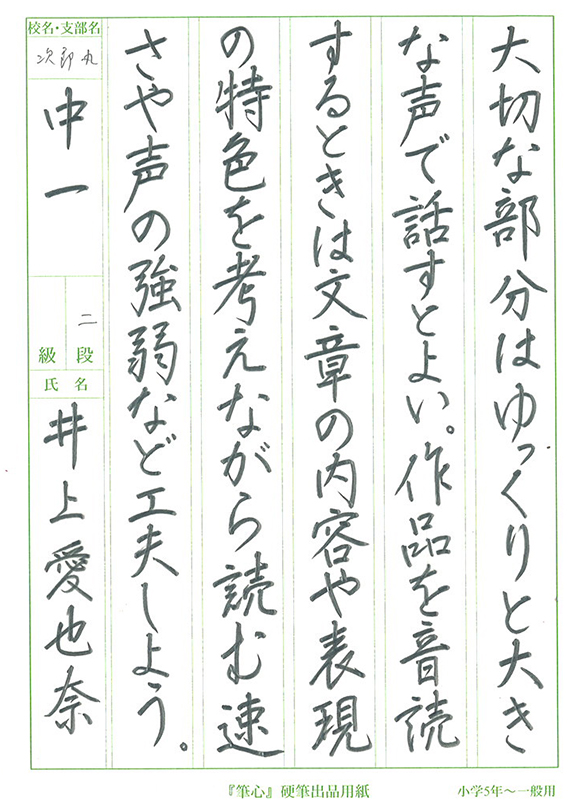 大切な部分はゆっくりと大き
な声で話すとよい。作品を音読
するときは文章の内容や表現
の特色を考えながら読む速
さや声の強弱など工夫しよう。
校名・支部名
次郎丸
中一
二
級 段
氏 名
井上愛也奈
『筆心』硬筆出品用紙
小学5年〜一般用